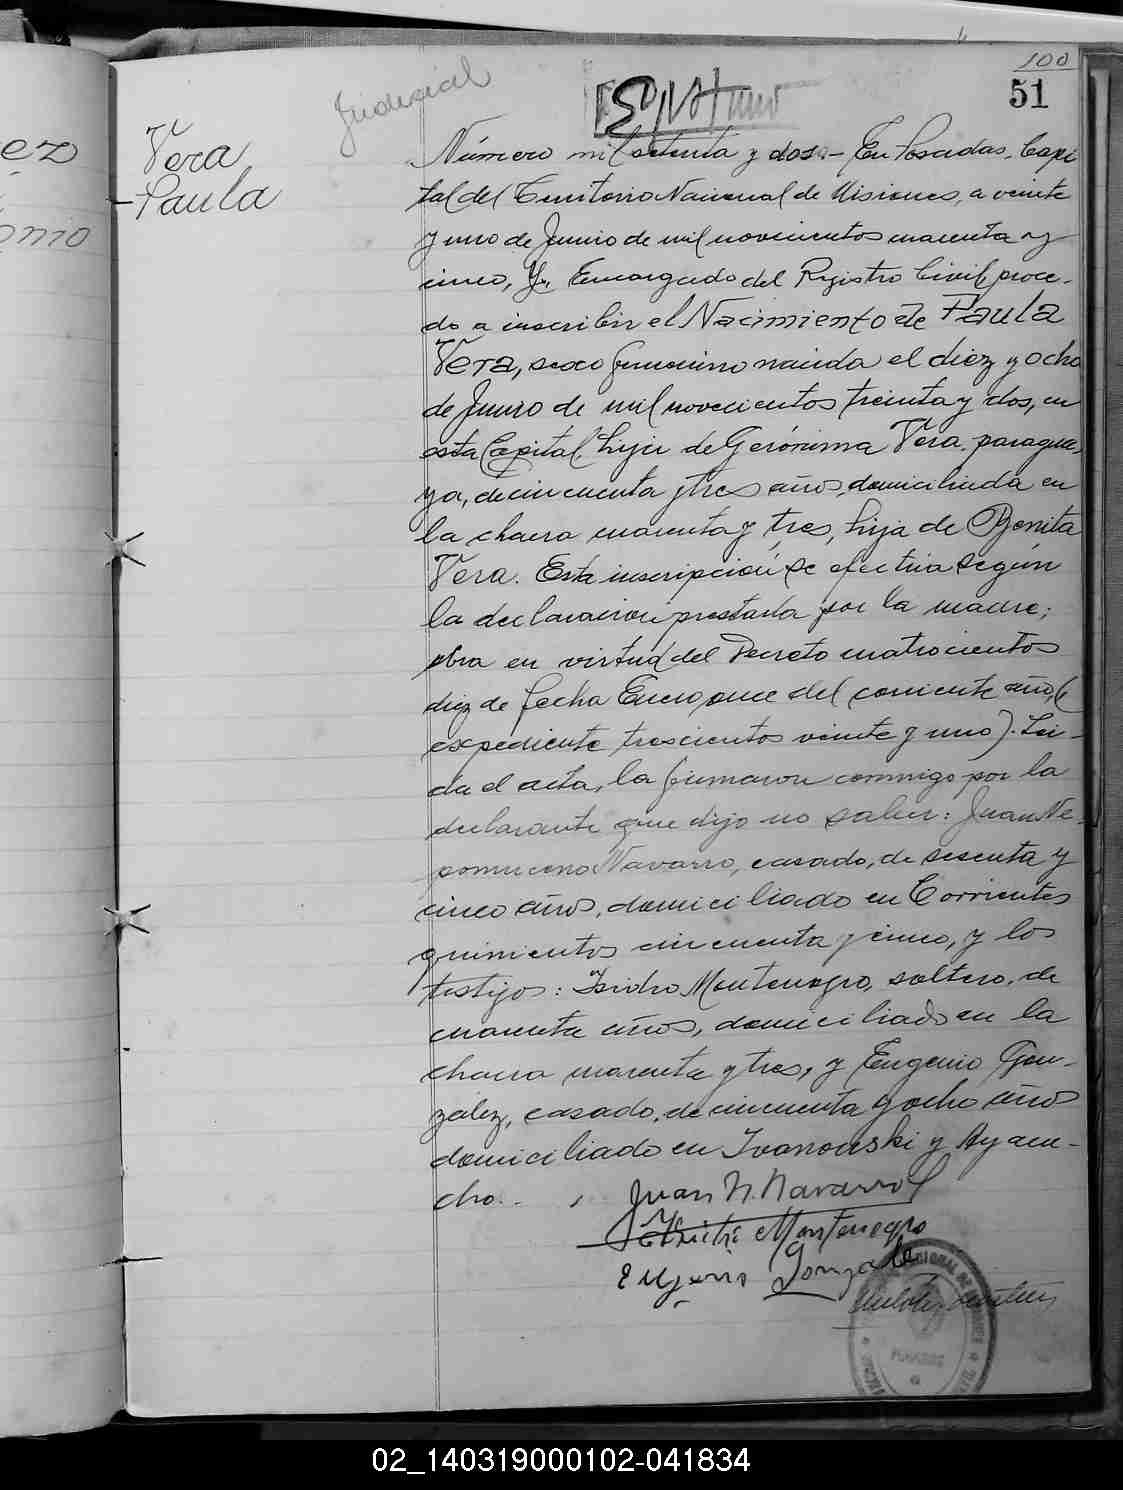 100
51
Judicial
ez
onio
Vera
Paula
Número mil setenta y dos.- En Posadas, Capi-
tal del Territorio Nacional de Misiones, a veinte
y uno de Junio de mil novecientos cuarenta y
cinco, Yo, Encargado del Registro Civil, proce-
do a inscribir el Nacimiento de Paula
Vera, sexo femenino nacida el diez y ocho
de Junio de mil novecientos treinta y dos, en
esta Capital, hija de Gerónima Vera, paragua-
ya, de cincuenta y tres años, domiciliada en
la chacra cuarenta y tres, hija de Benita
Vera. Esta inscripción se efectúa según
la declaración prestada por la madre;
obra en virtud del Decreto cuatrocientos
diez de fecha Enero once del corriente año, (
expediente trescientos veinte y uno). Leí-
da el acta, la firmaron conmigo por la
declarante que dijo no saber: Juan Ne-
pomuceno Navarro, casado, de sesenta y
cinco años, domiciliado en Corrientes
quinientos cincuenta y cinco, y los
testigos: Isidro Montenegro, soltero, de
cuarenta años, domiciliado en la
chacra cuarenta y tres, y Eugenio Gon-
zález, casado, de cincuenta y ocho años
domiciliado en Ivanowski y Ayacu-
cho.-
Juan N. Navarro
Montenegro
Eugenio Gonzales
POSADAS
02_140319000102-041834